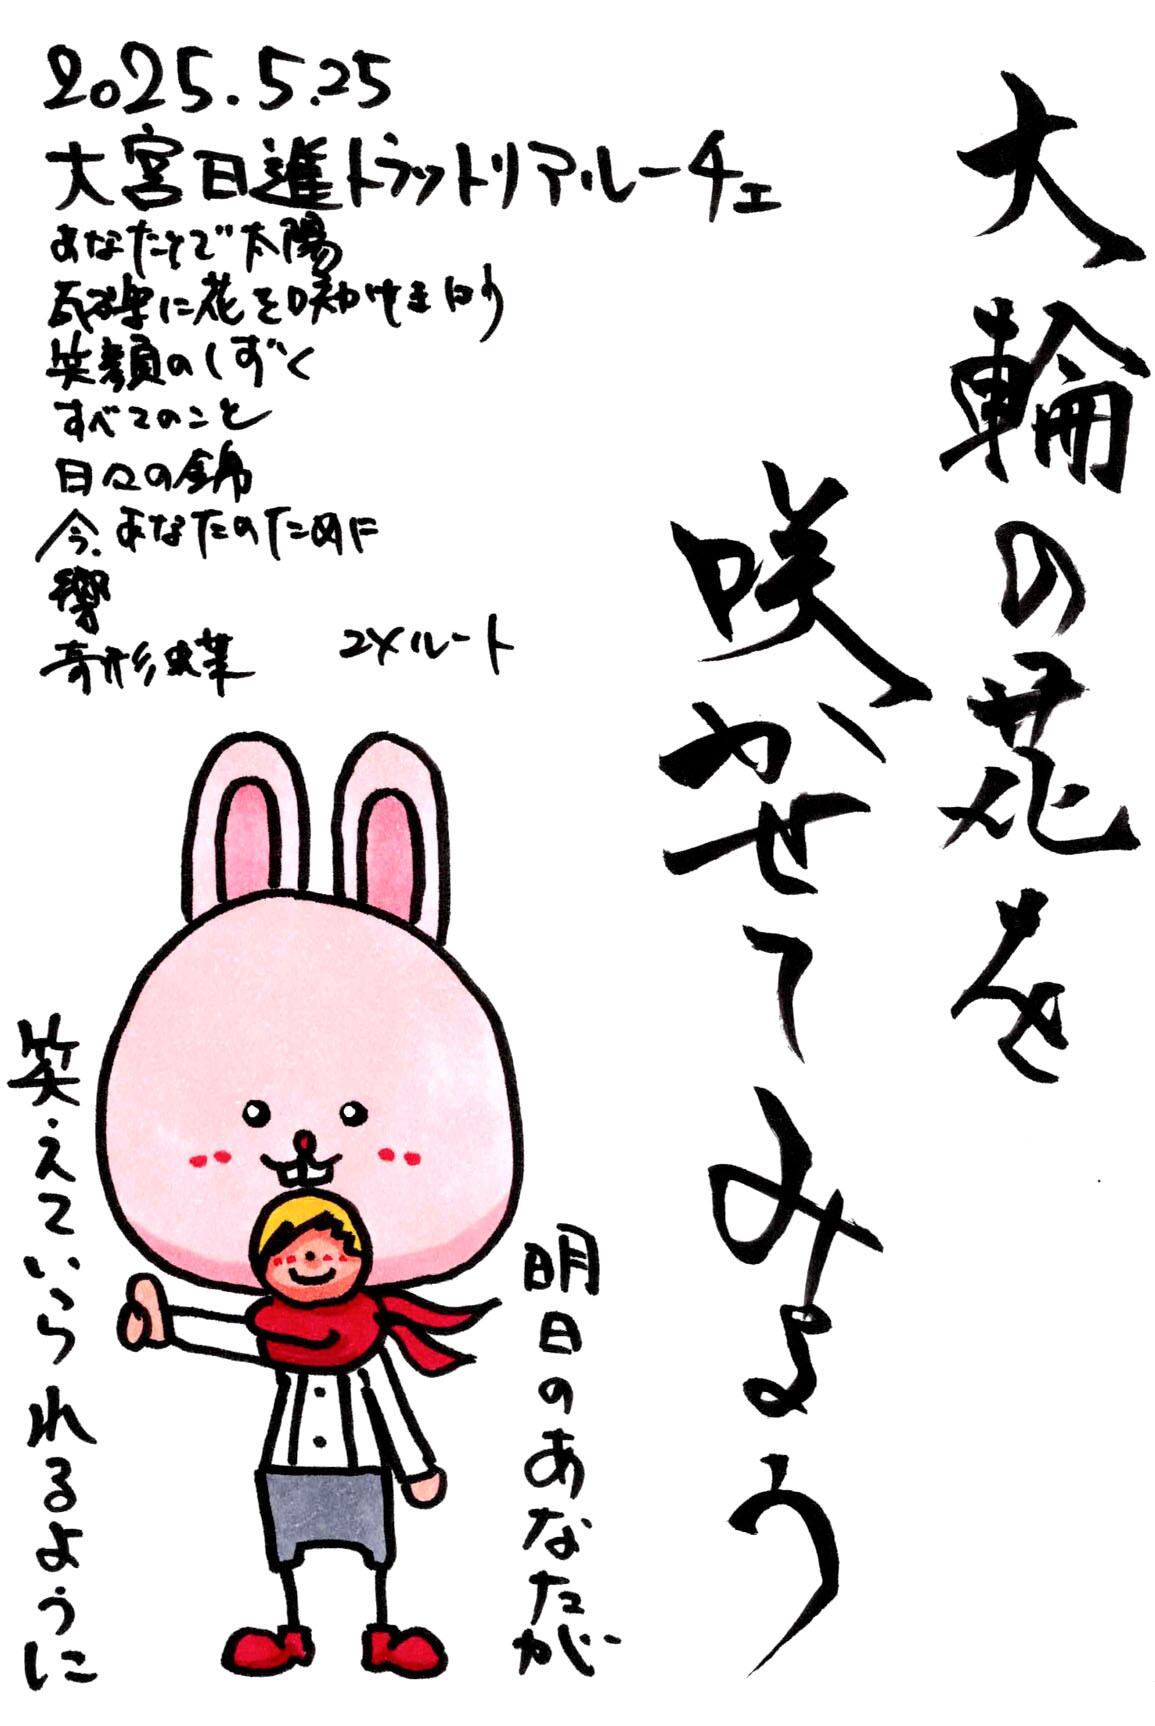 2025.5.25
大宮日進トラットリアルーチェ
あなたとで太陽
瓦礫に花を咲かせましょう
笑顔のしずく
すべてのこと
日々の錦
今、あなたのために
響
奇形蝶 2メルート
大輪の花を
咲かせてみよう
明日のあなたが
笑えていられるように